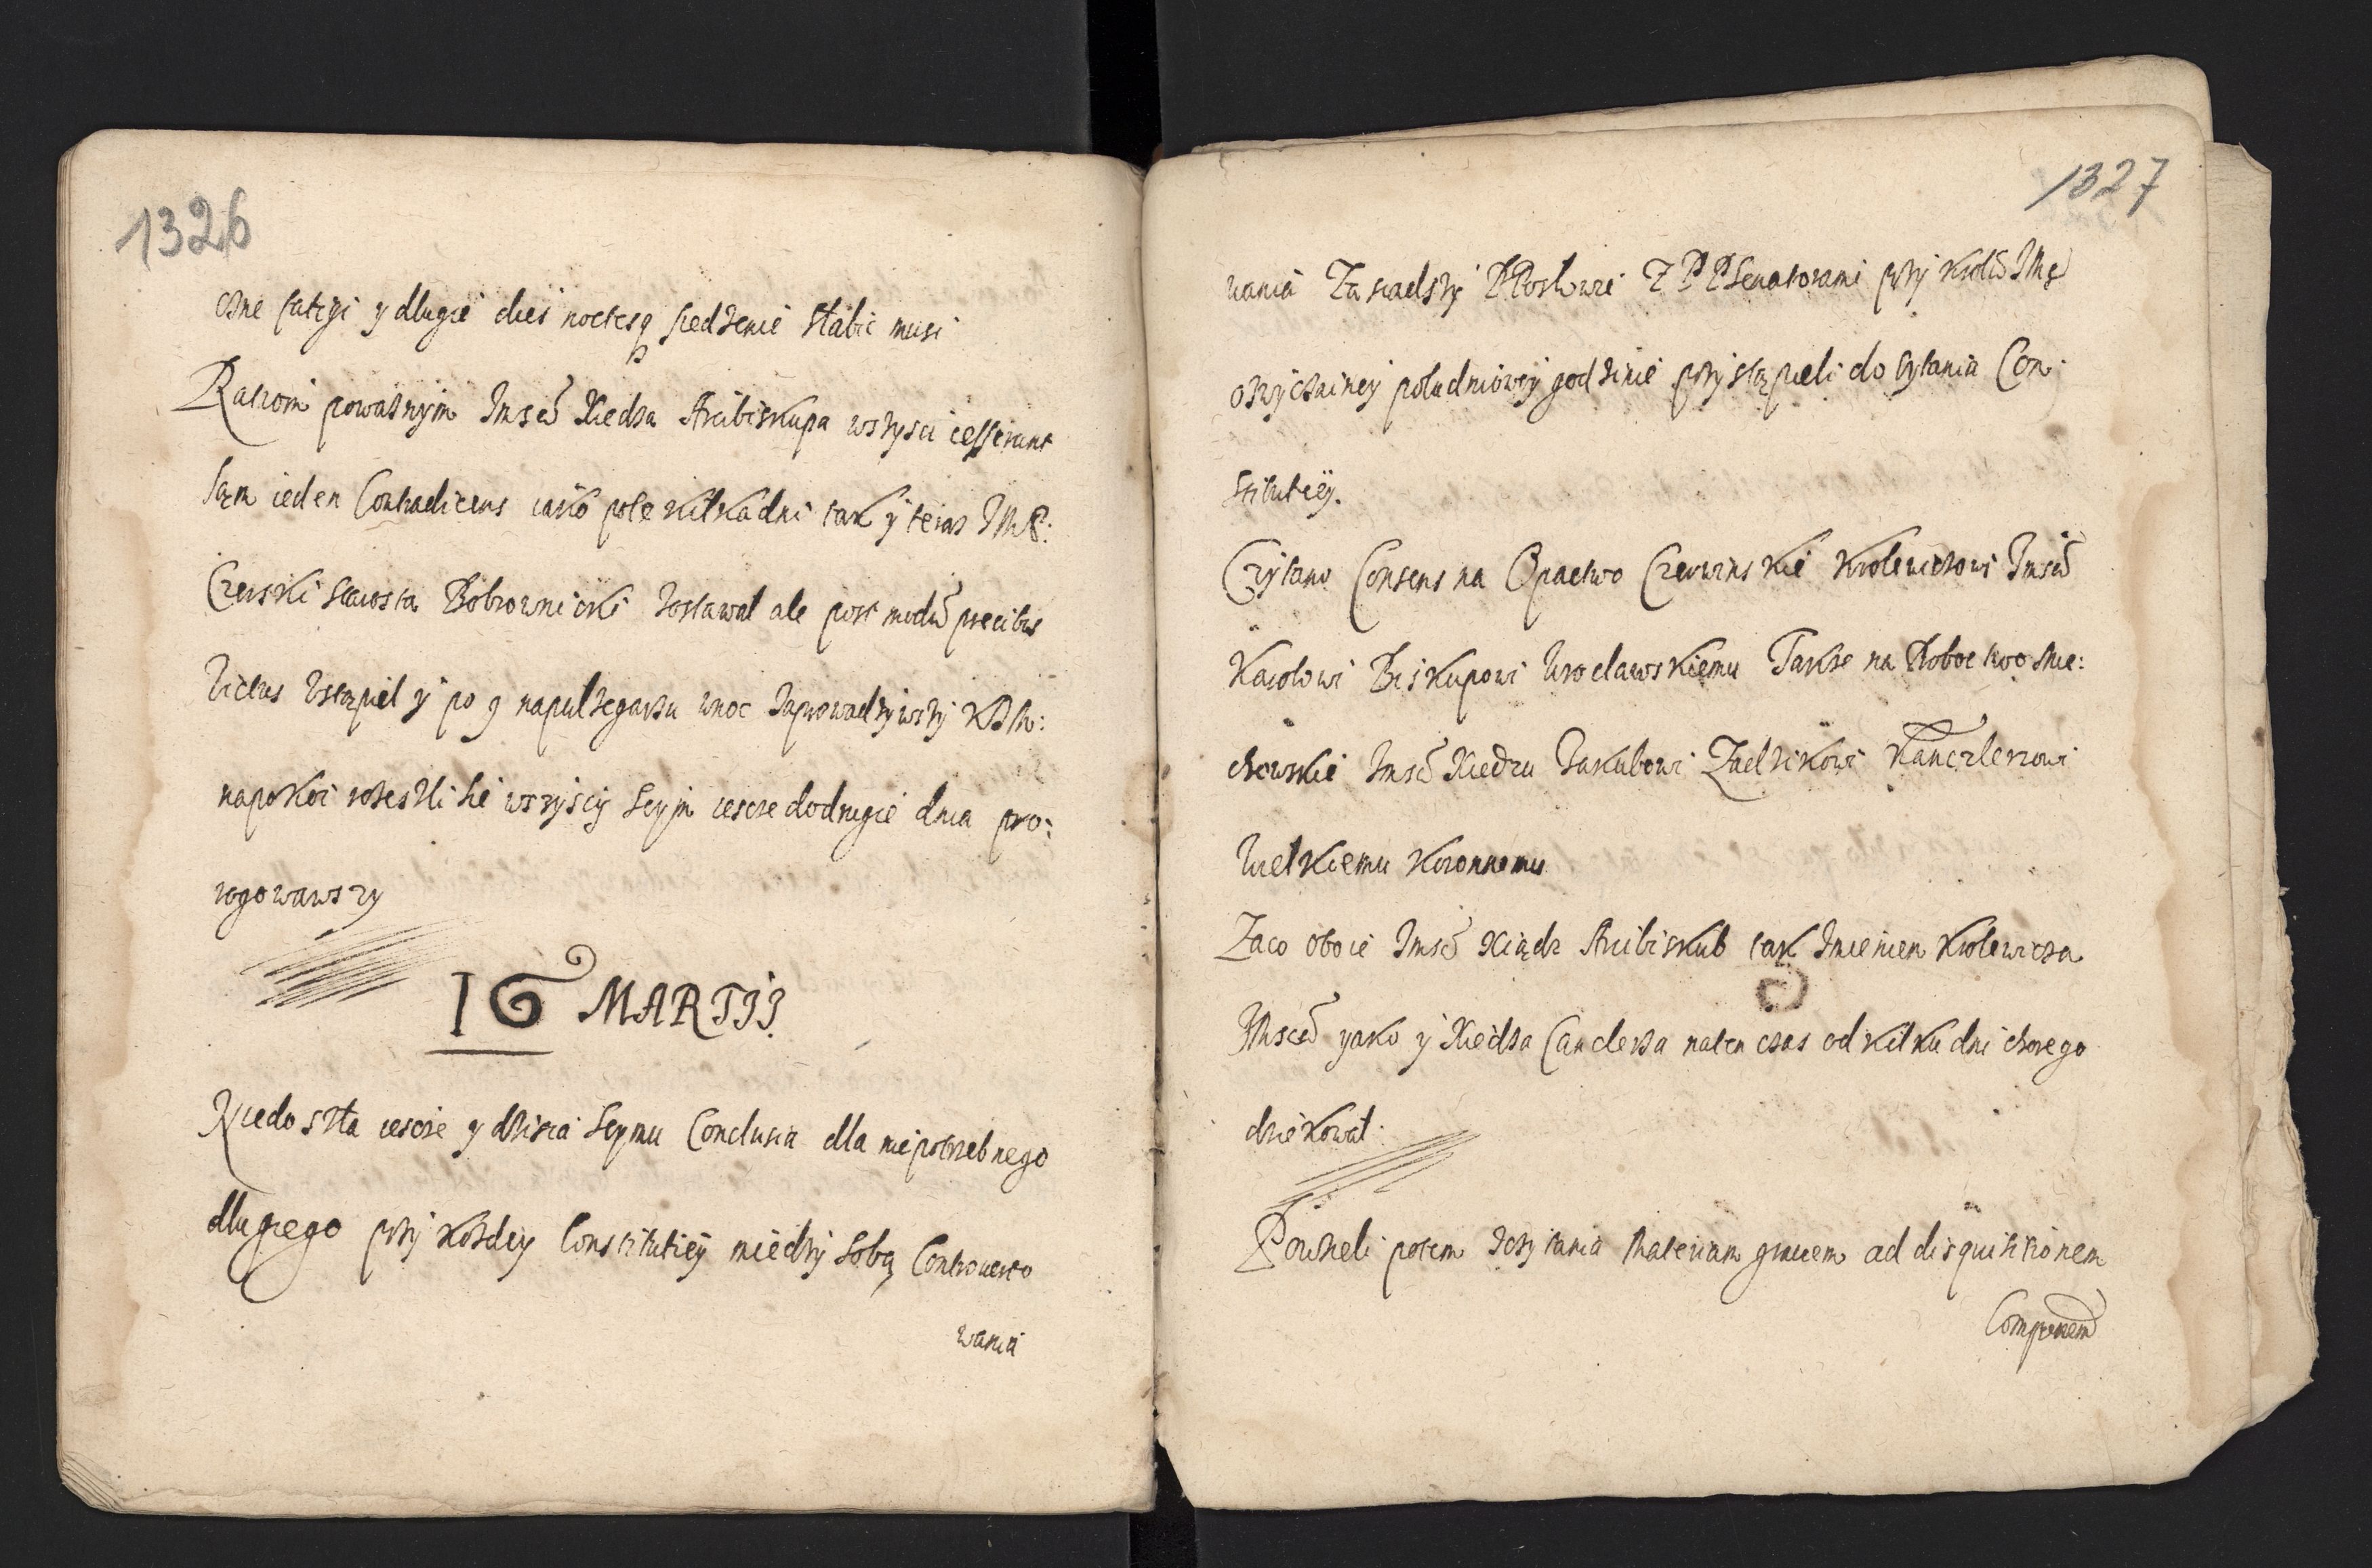 1326
czne fatigi y dlugie dies noctesq siedzenie słabic musi
Ratiom powaznym Jmscĩ Xiedza Arcibiskupa wszysci cesserunt
sam ieden Contradicens iako pole kilkadni tak y teras JMP:
Czerski Starosta Bobrownicki zostawal ale post modũ precibus
victus ustąpiel y po 9 napulzegarzu wnoc zaprowadziwszy
napokoi rozeszli sie wszyscy Seym iescze dodrugie dnia pro:
rogowawszy
16 MARTII
Niedoszła iescze y dzisia Seymu Conclusia dla niepotrzebnego
dlugiego przy kozdey Constitutiey miedzy sobą Controuerto
wania
1327
wania Zasiadszy PPosłowie Z PPSenatorami przy Krolũ JMę
ozwyczainey południowey godzinie przystąpieli do cytania Con:
stitutiey.
Czytano Consens na Opactwo Czerwinskie Krolewiczowi Jmscĩ
Karolowi Biskupowi Wroclawskiemu Takze na Probostwo Mie:
chowskie Jmscĩ Xiedzu Jakubowi Zadzikowi Kanczlerzowi
Wielkiemu Koronnemu
Zaco oboie Jmscĩ Xiądz Arcibiskub tak Jmieniem Krolewicza
JMsci yako y Xiedza Canclerza naten czas od kilku dni chorego
dziekował:
Powzieli potem zczytania Materiam grauem ad disquisitionem